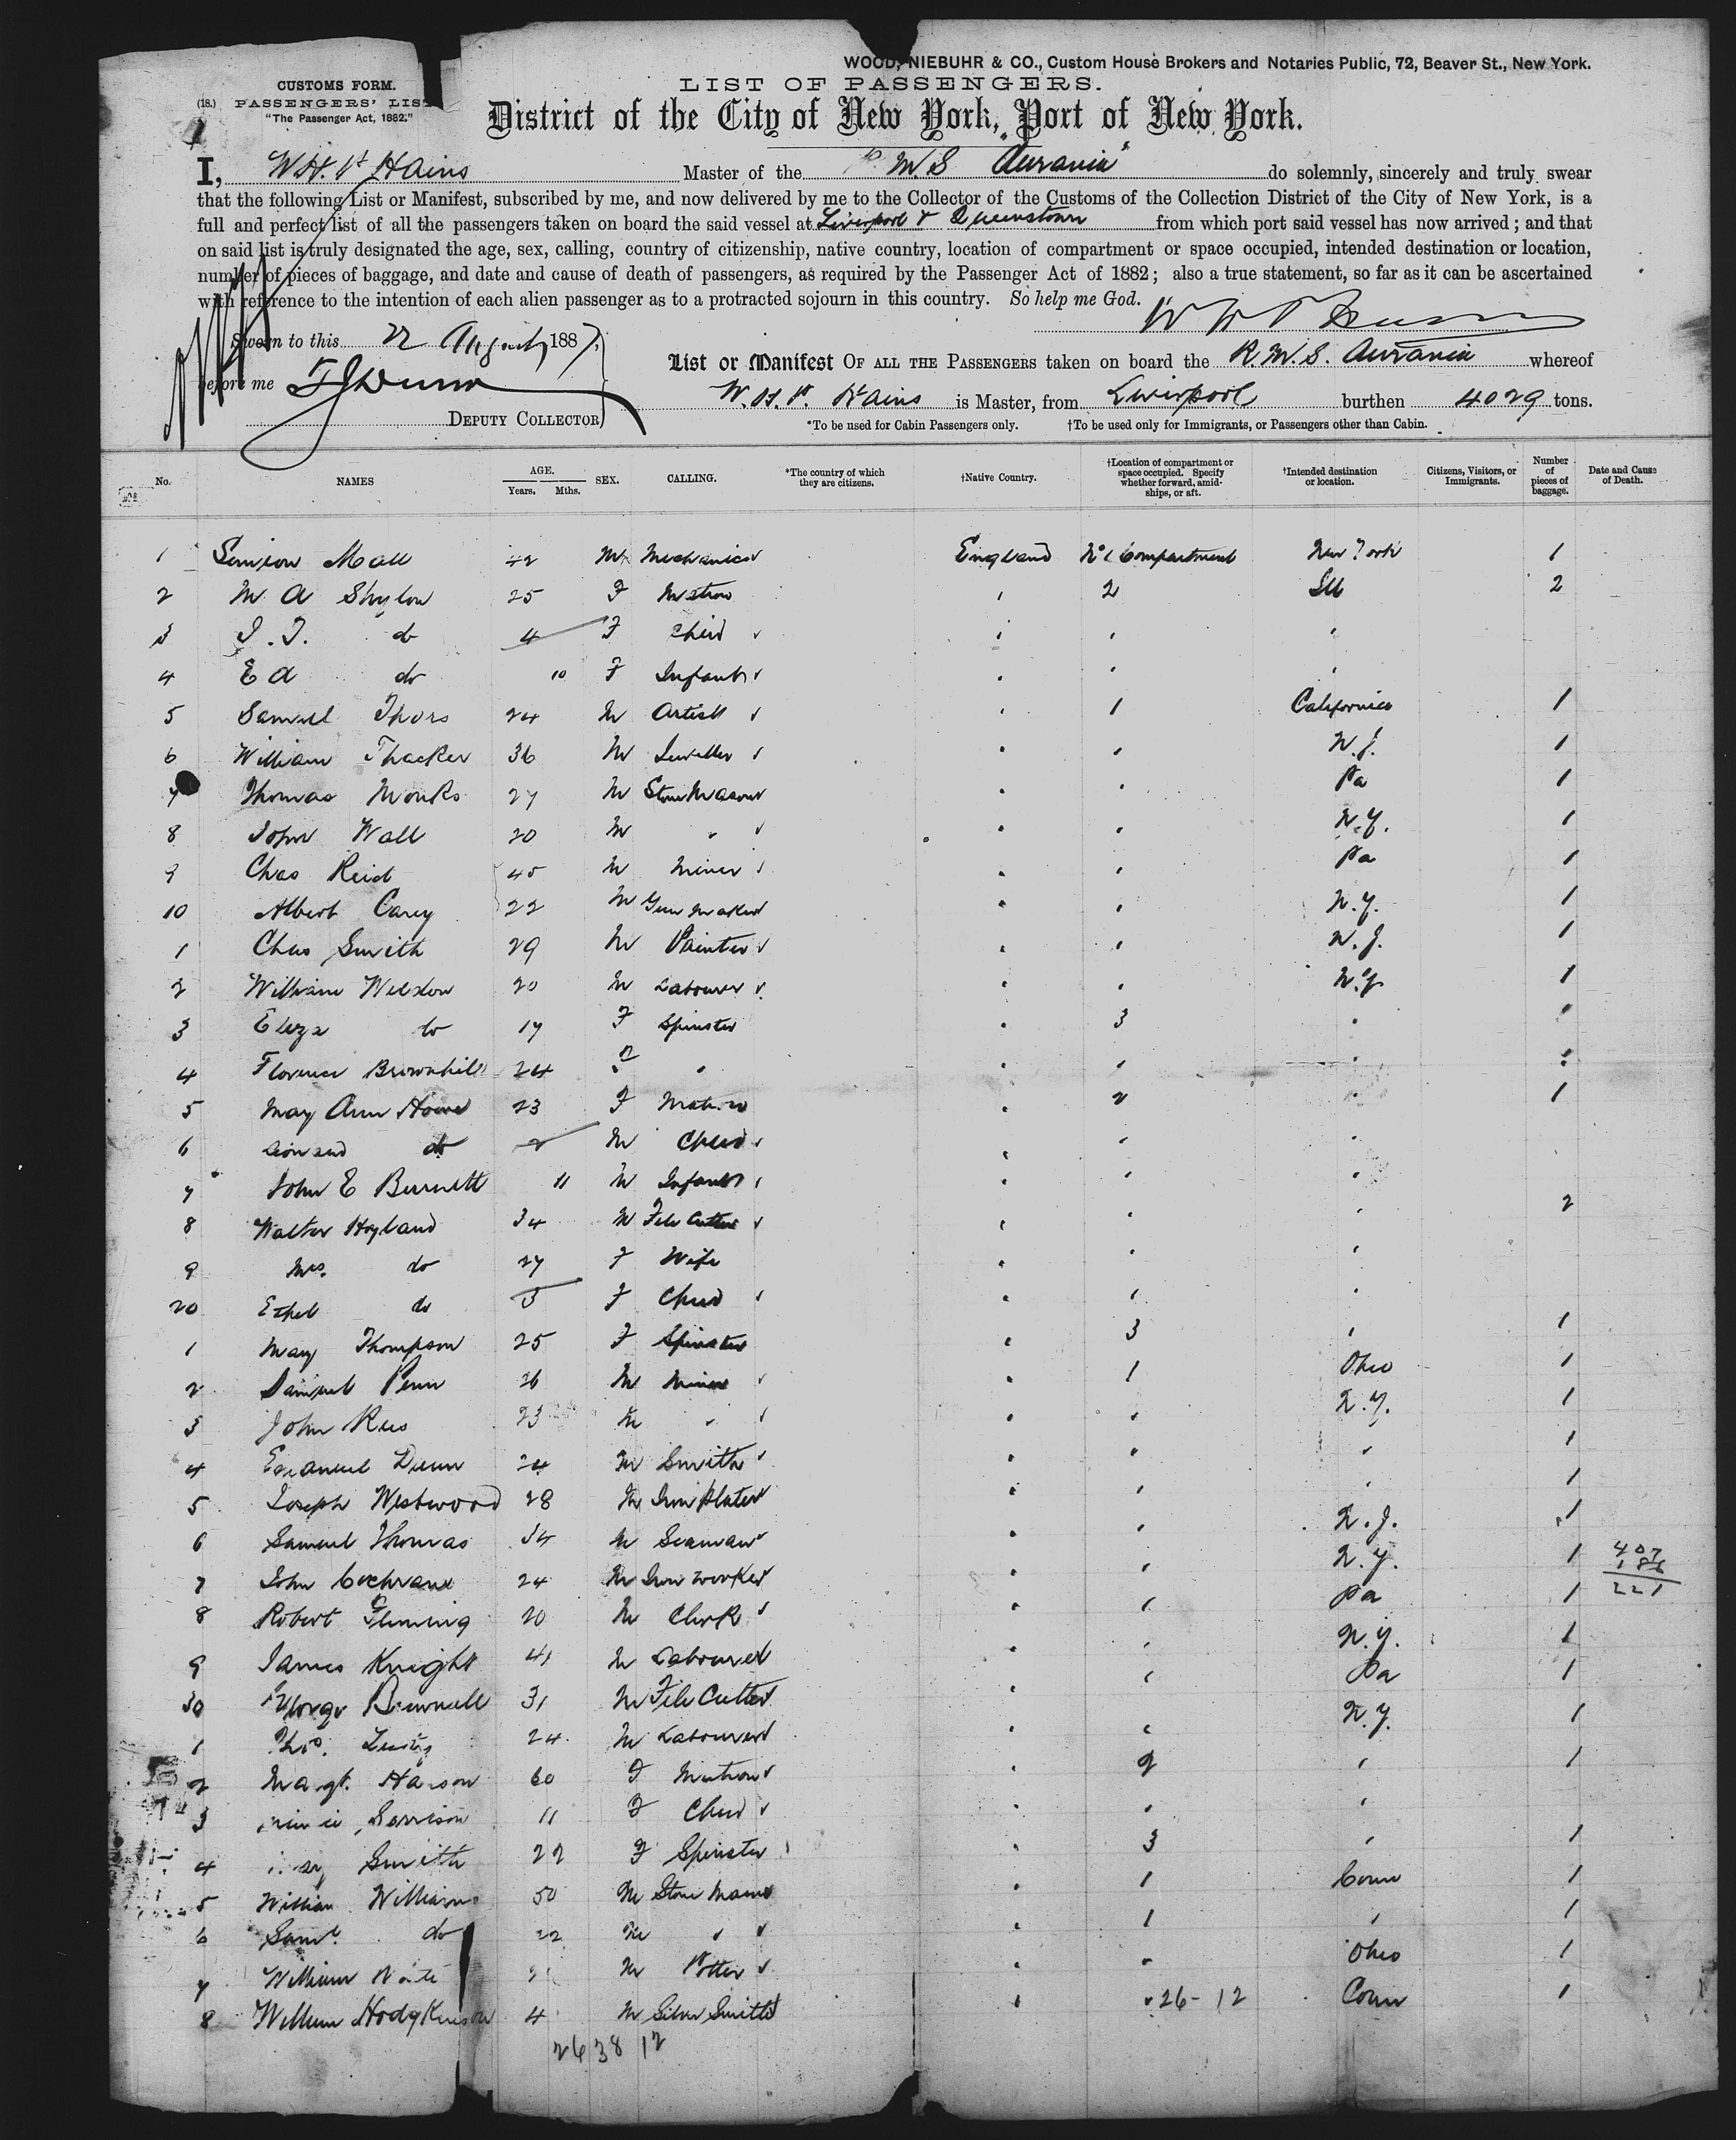 WOOD, NIEBUHR & CO., Custom House Brokers and Notaries Public, 72, Beaver St., New York.
CUSTOMS FORM.
(18.) PASSENGERS' LIST
"The Passenger Act, 1882."
LIST OF PASSENGERS.
District of the City of New York, Port of New York.
I, W.H.P. Hains Master of the R.M.S "Aurania" do solemnly, sincerely and truly swear
that the following List or Manifest, subscribed by me, and now delivered by me to the Collector of the Customs of the Collection District of the City of New York, is a
full and perfect list of all the passengers taken on board the said vessel at Liverpool & Queenstown from which port said vessel has now arrived; and that
on said list is truly designated the age, sex, calling, country of citizenship, native country, location of compartment or space occupied, intended destination or location,
number of pieces of baggage, and date and cause of death of passengers, as required by the Passenger Act of 1882; also a true statement, so far as it can be ascertained
with reference to the intention of each alien passenger as to a protracted sojourn in this country. So help me God.
Sworn to this 22 August 1887,
before me
DEPUTY COLLECTOR
List or Manifest OF ALL THE PASSENGERS taken on board the R.M.S. Aurania whereof
W.H.P. Hains is Master, from Liverpool burthen 4029 tons.
*To be used for Cabin Passengers only. †To be used only for Immigrants, or Passengers other than Cabin.
No. NAMES AGE. Years. Mths. SEX. CALLING. *The country of which they are citizens. †Native Country. †Location of compartment or space occupied. Specify whether forward, amidships, or aft. †Intended destination or location. Citizens, Visitors, or Immigrants. Number of pieces of baggage. Date and Cause of Death.
1 Mall 42 M Mechanic England No 1 Compartment New York 1
2 M A 25 F Matron " 2 Ill 2
3 do 4 F Child " " "
4 E A do 10 F Infant " " "
5 Samuel Thors 24 M Artist " 1 California 1
6 William Thacker 36 M Jeweller " " N.J. 1
7 Thomas Monks 27 M Stone Mason " " Pa 1
8 John Wall 20 M " " " N.Y. 1
9 Chas Reid 45 M Miner " " Pa 1
10 Albert Carey 22 M Gun Maker " " N.Y. 1
1 Chas Smith 29 M Painter " " N.J. 1
2 William Weldon 20 M Labourer " " N.Y. 1
3 Eliza do 17 F Spinster " 3 " "
4 Florence Brownhill 24 F " " " " "
5 Mary Ann Howe 23 F Matron " 2 " 1
6 do 2 M Child " " "
7 John E Burnett 11 M Infant " " "
8 Walter Hoyland 34 M File Cutter " " " 2
9 Mrs. do 27 F Wife " " "
20 Ethel do 5 F Child " " "
1 Mary Thompson 25 F Spinster " 3 " 1
2 Samuel Penn 26 M Miner " 1 Ohio 1
3 John Rees 23 M " " " N.Y. 1
4 Emanuel Dunn 24 M Smith " " " 1
5 Joseph Westwood 28 M Iron Plater " " " 1
6 Samuel Thomas 34 M Seaman " " N.J. 1
7 John Cochrane 24 M Iron Worker " " N.Y. 1
407
186
221
8 Robert Fleming 20 M Clerk " " Pa 1
9 James Knight 41 M Labourer " " N.Y. 1
30 George 31 M File Cutter " " Pa 1
1 Thos. 24 M Labourer " " N.Y. 1
2 Margt. 60 F Matron " 2 " 1
3 11 F Child " " "
4 Smith 22 F Spinster " 3 " 1
5 William Williams 50 M Stone Mason " 1 Conn 1
6 Saml. do 22 M " " 1 " 1
7 William M Potter " " Ohio 1
8 William Hodgkinson 4 M Silver Smith " " 26-12 Conn 1
26 38 12